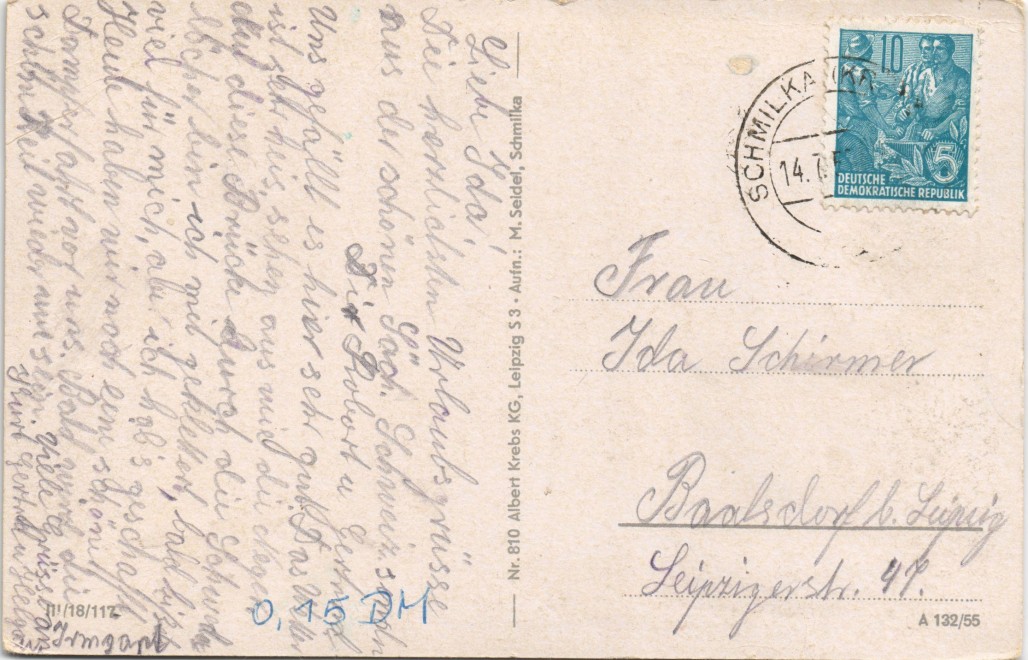 Liebe Ida!
Die herzlichsten Urlaubsgrüsse
aus der schönen Säch. Schweiz. senden
Dir Robert u. Gertrud
Uns gefällt es hier sehr gut. Das Wetter
ist sehr heis, sehen aus wie die
Auf diese Brücke durch die Schwed
löcher bin ich mit geklettert, bald bisl
viel für mich, aber ich hab's geschafft.
Heute haben wir noch eine schöne
Dampferfahrt vor uns. Bald wird die
schöne Zeit wieder aus sein. Viele Grüsse an
Kurt Gertrud
Irmgard
III/18/117
0,15 DM
Nr. 810 Albert Krebs KG, Leipzig S 3 · Aufn.: M. Seidel, Schmilka
SCHMILKA (KR
14.7.5
10
5
DEUTSCHE
DEMOKRATISCHE REPUBLIK
Frau
Ida Schirmer
Baalsdorf b. Leipzig
Leipzigerstr. 47.
A 132/55